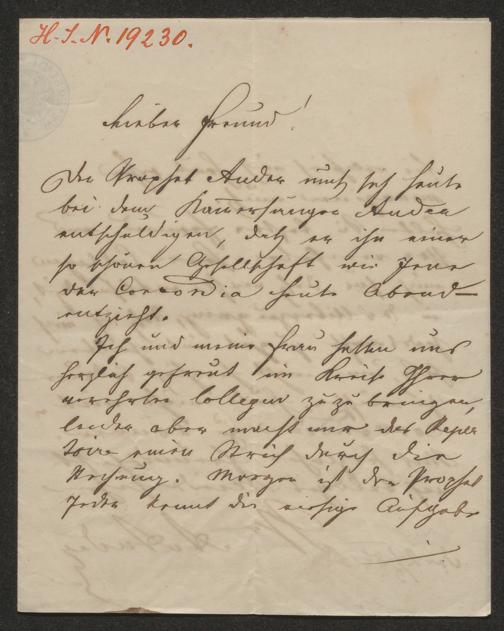 H. I. N. 19230.
Lieber Freund!
Der Prophet Ander muß sich heute
bei dem Kammersänger Ander
entschuldigen, daß er ihn einer
so schönen Gesellschaft wie jene
der Concordia heute Abend
entzieht.
Ich und meine Frau hatten uns
herzlich gefreut im Kreise Ihrer
verehrten Collegen zuzubringen,
leider aber macht mir das Reper
toire einen Strich durch die
Rechnung. Morgen ist der Prophet
Jeder kennt die riesige Aufgabe